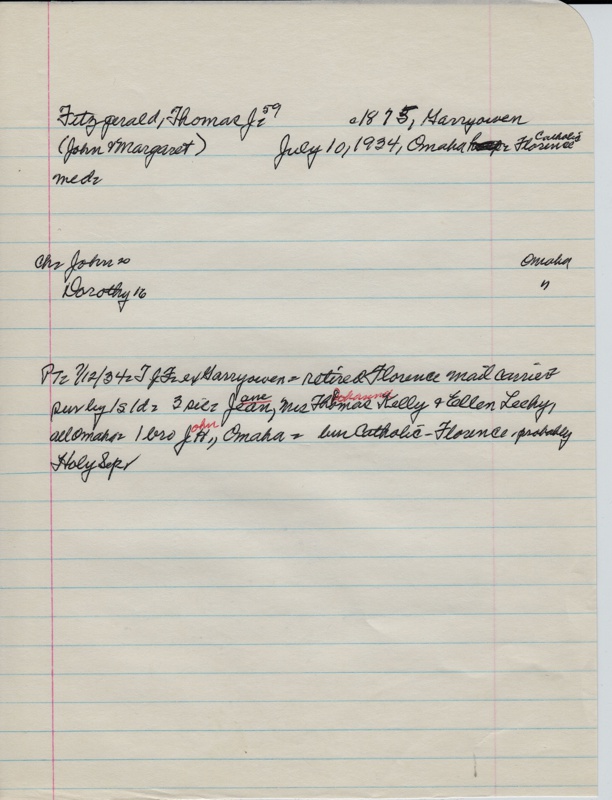 Fitzgerald, Thomas J= 59 c1875, Garryowen
(John & Margaret) July 10, 1934, Omaha Catholic Florence
med=
Ch= John 20 Omaha
Dorothy 16 "
PT= 7/12/34= T J F= ex Garryowen= retired Florence mail carrier=
sur by 1s 1d= 3 sis= Jean, ane Mrs Thomas Johanna Kelly & Ellen Leehy,
all Omaha= 1 bro J H, ohn Omaha = bur Catholic - Florence - probably
Holy Sep